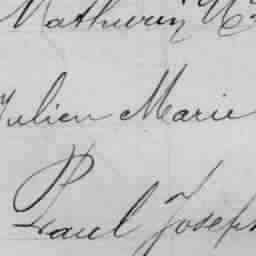 Mathurin
Julien Marie
Paul Joseph